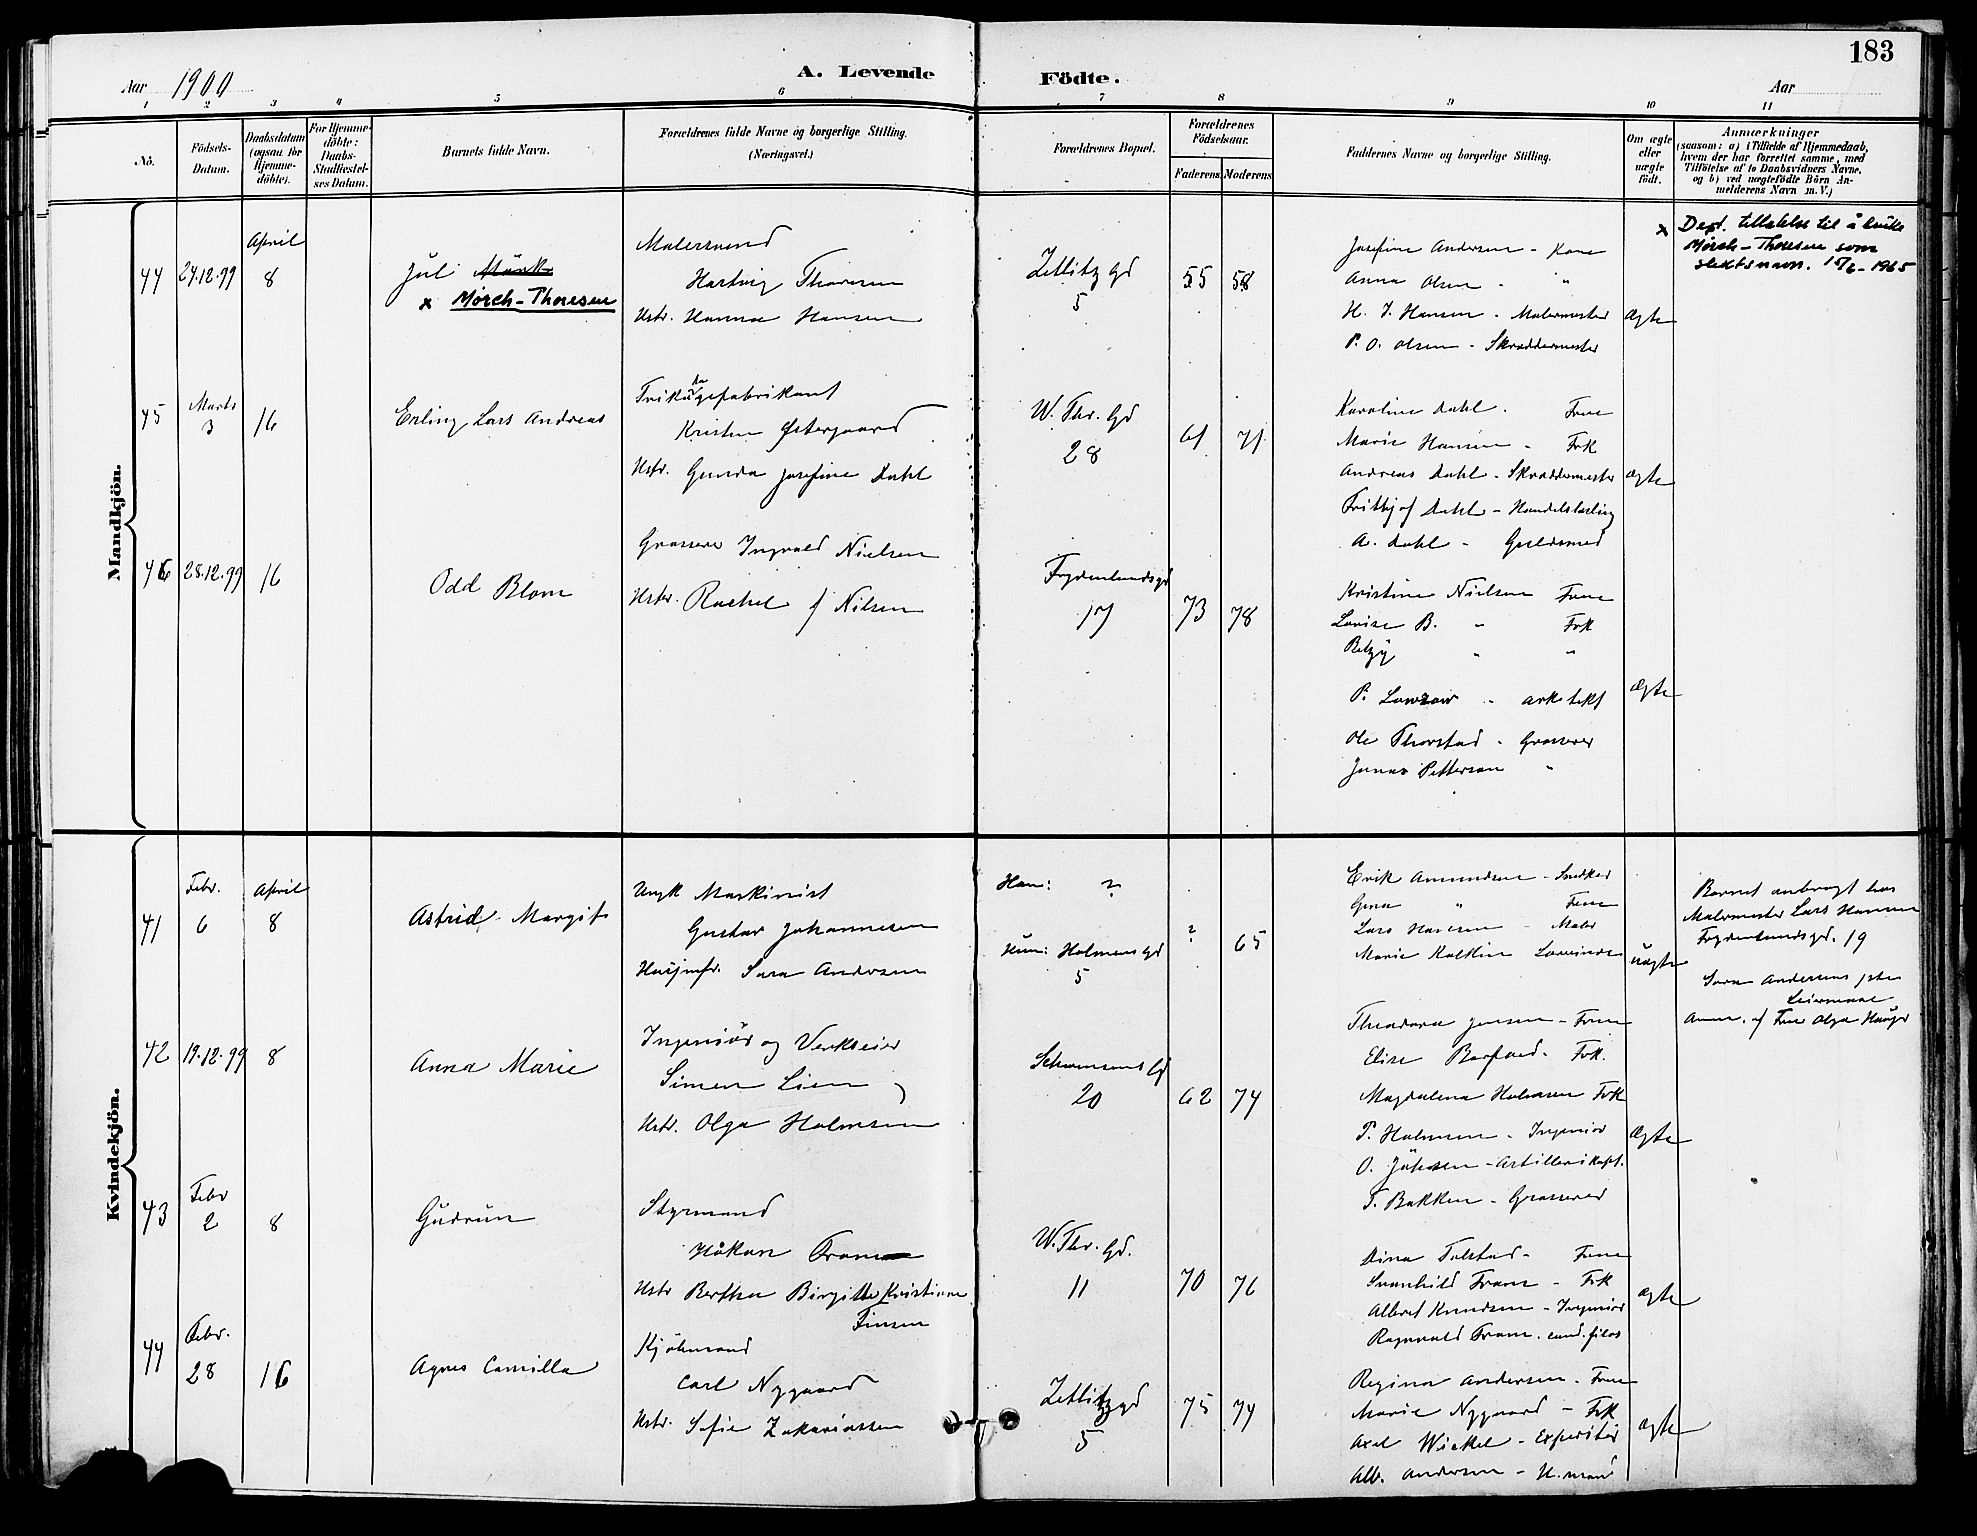 183
Aar 1900
A. Levende Födte.
Aar
1 2 3 4 5 6 7 8 9 10 11
No.
Födsels-Datum.
Daabsdatum (ogsaa for Hjemme-döbte).
For Hjemme-döbte: Daabs-Stadfæstel-ses Datum.
Barnets fulde Navn.
Forældrenes fulde Navne og borgerlige Stilling.
(Næringsvei.)
Forældrenes Bopæl.
Forældrenes Födselsaar.
Faderens Moderens
Faddernes Navne og borgerlige Stilling.
Om ægte eller uægte födt.
Anmærkninger
(saasom: a) i Tilfælde af Hjemmedaab,
hvem der har forrettet samme, med
Tilföielse af to Daabsvidners Navne,
og b) ved uægtefödte Börn An-
melderens Navn m. V.)
Mandkjön.
44
24.12.99
April
8
Jul Mörk
x Mörch-Thoresen
Malersvend
Hartvig Thoresen
Hstr. Hanna Hansen
Zetlitz gd
5
55 58
Josefine Andersen - Kone
Anna Olsen - "
H. J. Hansen - Malermester
P. O. Olsen - Skræddermester
Ægte
x Dept. tillatelse til å bruke
Mörch-Thoresen som
slektsnavn. 15/6-1965
45
Marts
3
16
Erling Lars Andreas
Trikotagefabrikant
Kristen Østergaard
Hstr. Gunda Josefine Dahl
W. Thr. Gd
28
61 71
Karoline Dahl - Frue
Marie Hansen - Frk
Andreas Dahl - Skræddermester
Fritjof Dahl - Handelslærling
A. Dahl - Guldsmed
Ægte
46
28.12.99
16
Odd Blom
Grosserer Ingvald Nielsen
Hstr. Rachel f Nilsen
Frydenlundsgd
17
73 78
Kristine Nielsen Frue
Lovise B. " Frk
Betzy " "
P. Lowzow - arkitekt
Ole Thorstad - Grosserer
Jonas Pettersen "
Ægte
Kvindekjön.
41
Febr.
6
April
8
Astrid Margit
Ungk Maskinist
Gustav Johannesen
Husjmfr. Sara Andersen
Han: ?
Hun: Holmens Gd
5
? 65
Erik Amundsen - Snedker
Gina " Frue
Lars Hansen - Maler
Marie
uægte
Barnet anbragt hos
Malermester Lars Hansen
Frydenlundsgd. 19
Sara Andersens 1ste
Leiermaal
Anm. af Frue Olga Hauge
42
19.12.99
8
Anna Marie
Ingeniör og Verkseier
Simen Lien
Hstr. Olga Holmsen
Schwensens Gd
20
62 74
Theodora Jensen - Frue
Elise Barfoed - Frk.
Magdalena Holmsen Frk
P. Holmsen - Ingeniör
O. Jöhnsen - Artillerikapt.
T. Bakken - Grosserer
Ægte
43
Febr
2
8
Gudrun
Styrmand
Håkon Fram
Hstr Bertha Birgitte Kristiane
Finsen
W. Thr. Gd.
11
70 76
Dina Tolstad - Frue
Svanhild Fram - Frk
Albert Knudsen - Ingeniör
Ragnvald Fram. cand. filos
Ægte
44
Febr.
28
16
Agnes Camilla
Kjöbmand
Carl Nygaard
Hstr. Sofie Zakariassen
Zetlitz gd
5
75 74
Regina Andersen - Frue
Marie Nygaard - Frk
Axel Winkel - Expeditör
Alb. Andersen - H.mand
Ægte